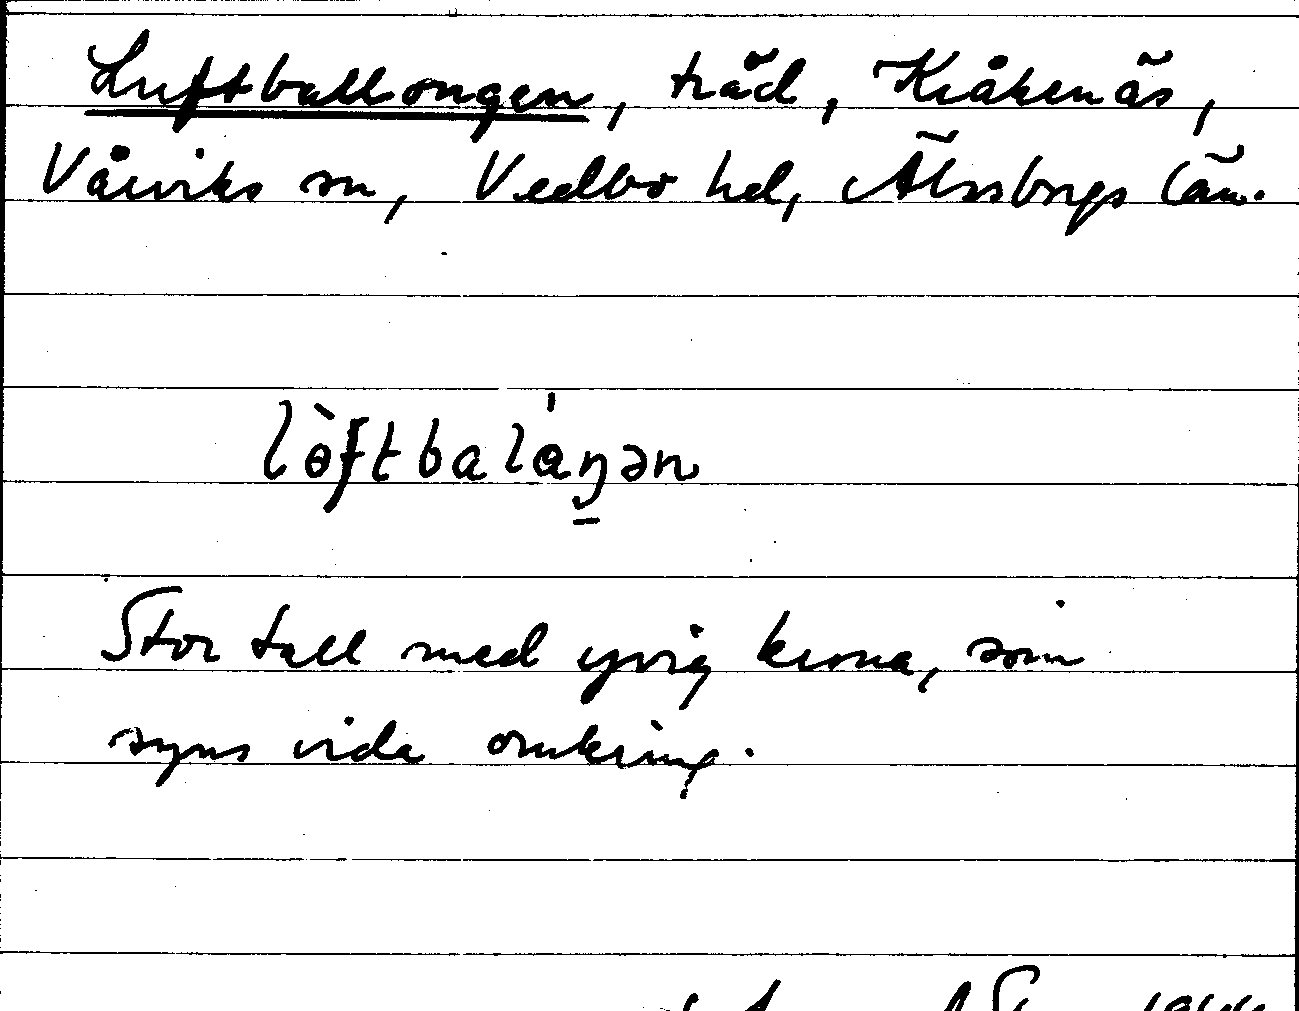 Luftballongen, träd, Kråkenäs,
Vårviks sn, Vedbo hd, Älvsborgs län.
lòftbaláŋən
Stor tall med yvig krona, som
syns vida omkring.